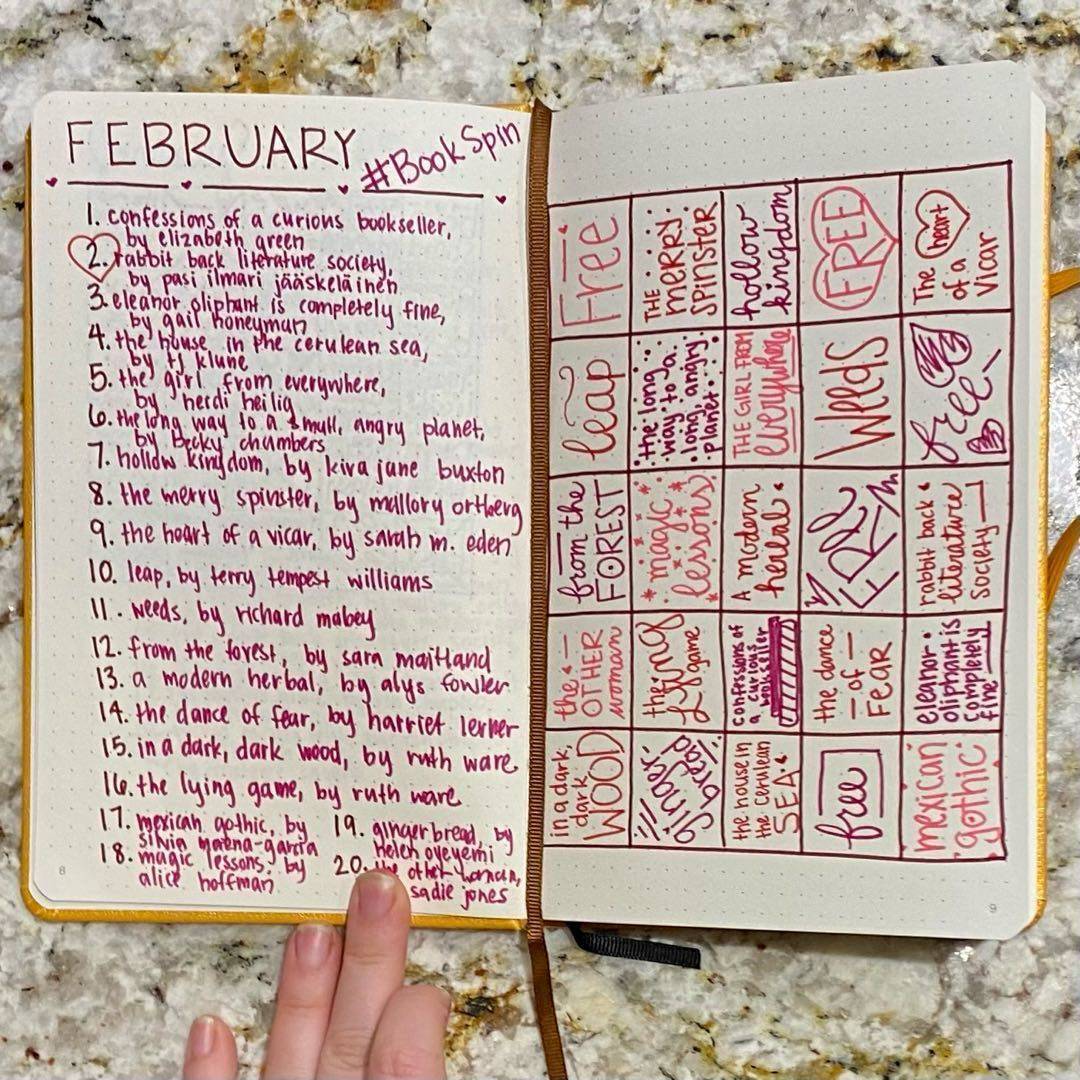 FEBRUARY
#BookSpin
1. confessions of a curious bookseller,
by elizabeth green
2. rabbit back literature society,
by pasi ilmari jääskeläinen
3. eleanor oliphant is completely fine,
by gail honeyman
4. the house in the cerulean sea,
by tj klune
5. the girl from everywhere,
by heidi heilig
6. the long way to a small, angry planet,
by becky chambers
7. hollow kingdom, by kira jane buxton
8. the merry spinster, by mallory ortberg
9. the heart of a vicar, by sarah m. eden
10. leap, by terry tempest williams
11. weeds, by richard mabey
12. from the forest, by sara maitland
13. a modern herbal, by alys fowler
14. the dance of fear, by harriet lerner
15. in a dark, dark wood, by ruth ware
16. the lying game, by ruth ware
17. mexican gothic, by
silvia garcia
18. magic lessons, by
alice hoffman
19. gingerbread, by
helen oyeyemi
20. the other woman,
sadie jones
8
Free
THE
MERRY
SPINSTER
hollow
kingdom
FREE
The heart
of a
Vicar
leap
the long
way to a
long, angry
planet
THE GIRL FROM
everywhere
WEEdS
free
from the
FOREST
magic
lessons
A modern
herbal
FREE
rabbit back
literature
society
the
OTHER
woman
the
Lying
game
confessions of
a curious
bookseller
the dance
of
FEAR
eleanor
oliphant is
completely
fine
in a dark,
dark
WOOD
ginger
bread
the house in
the cerulean
SEA
free
mexican
gothic
9